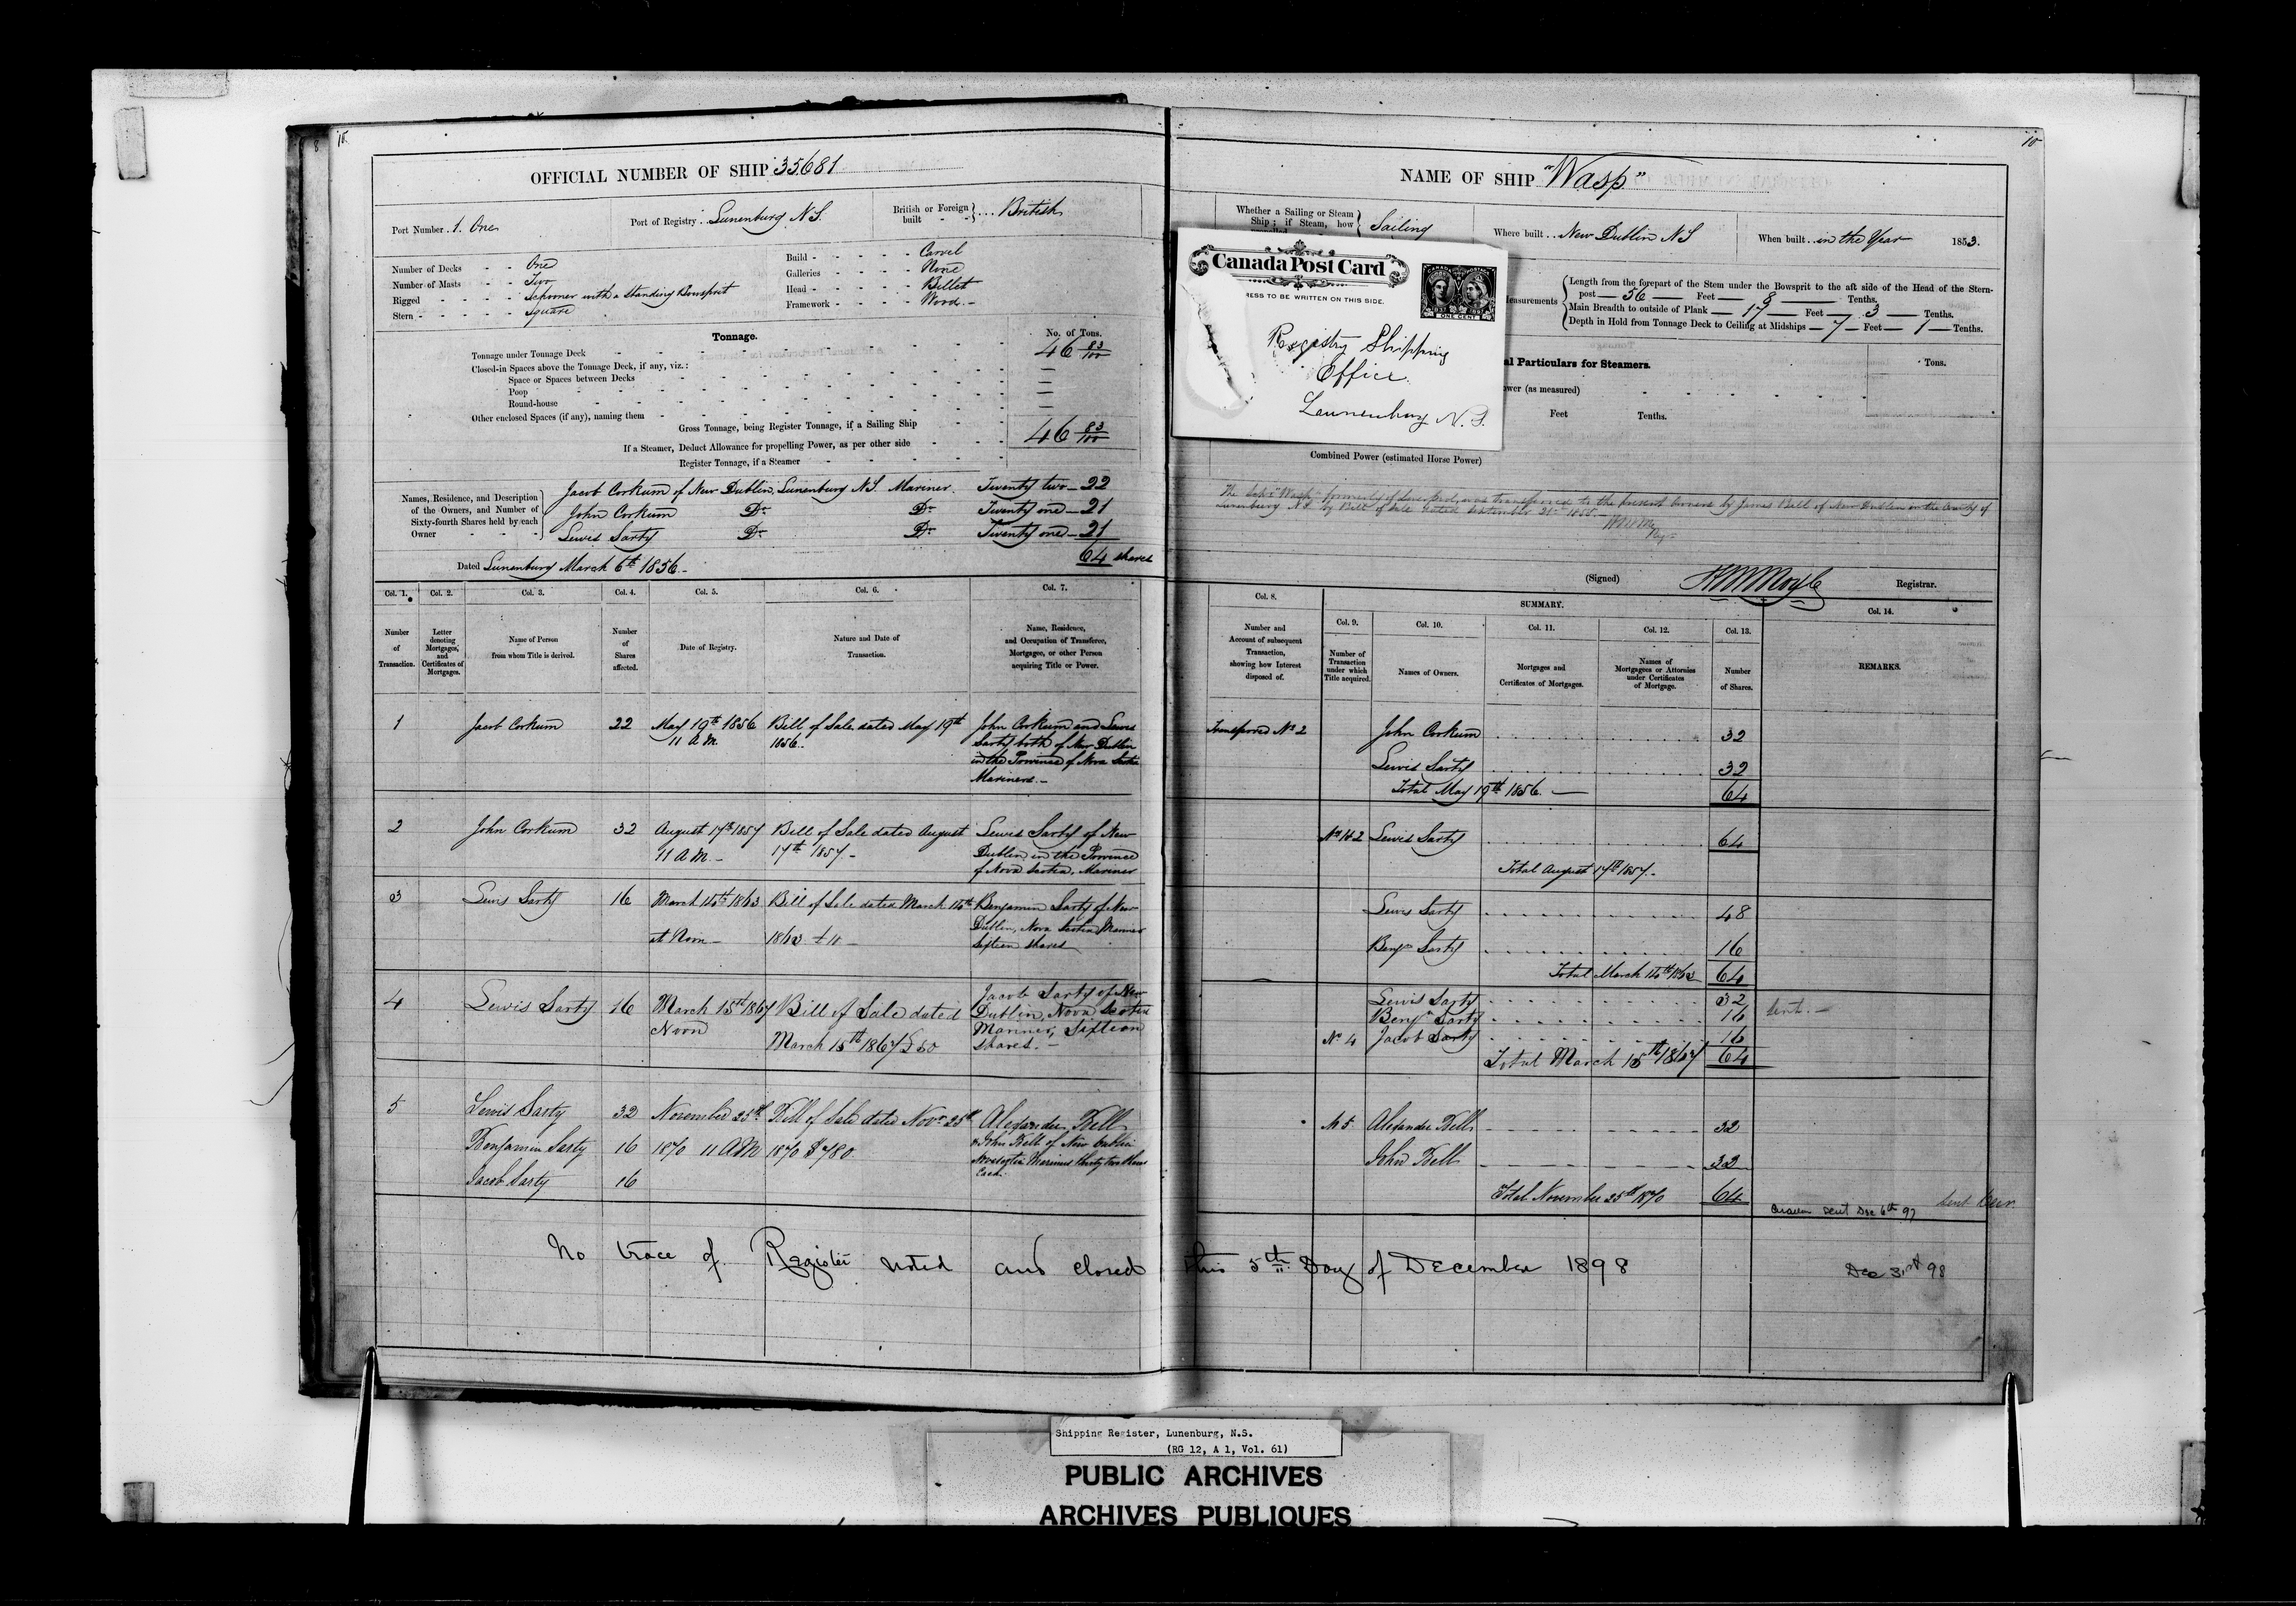 18
10
OFFICIAL NUMBER OF SHIP 35681
NAME OF SHIP "Wasp"
Port Number 1. One
Port of Registry Lunenburg N.S.
British or Foreign built British
Whether a Sailing or Steam Ship; if Steam, how Sailing
Where built New Dublin NS
When built in the Year 1853.
Number of Decks One
Number of Masts Two
Rigged Schooner with a Standing Bowsprit
Stern Square
Build Carvel
Galleries None
Head Billet
Framework Wood
Canada Post Card
RESS TO BE WRITTEN ON THIS SIDE.
ONE CENT
Registry Shipping
Office
Lunenburg N.S.
easurements
Length from the forepart of the Stem under the Bowsprit to the aft side of the Head of the Stern-
post 56 Feet 8 Tenths.
Main Breadth to outside of Plank 17 Feet 3 Tenths.
Depth in Hold from Tonnage Deck to Ceiling at Midships 7 Feet 1 Tenths.
Tonnage.
No. of Tons.
Tonnage under Tonnage Deck 46 83/100
Closed-in Spaces above the Tonnage Deck, if any, viz.:
Space or Spaces between Decks —
Poop —
Round-house —
Other enclosed Spaces (if any), naming them —
Gross Tonnage, being Register Tonnage, if a Sailing Ship 46 83/100
If a Steamer, Deduct Allowance for propelling Power, as per other side
Register Tonnage, if a Steamer
al Particulars for Steamers.
Tons.
ower (as measured)
Feet Tenths.
Combined Power (estimated Horse Power)
Names, Residence, and Description of the Owners, and Number of Sixty-fourth Shares held by each Owner
Jacob Corkum of New Dublin, Lunenburg N.S. Mariner. Twenty two – 22
John Corkum Do Do Twenty one – 21
Lewis Sarty Do Do Twenty one – 21
64 shares
Dated Lunenburg March 6th 1856.
The Schr "Wasp" formerly of Liverpool, was transferred to the present Owners by James Bell of New Dublin in the County of
Lunenburg N.S. by Bill of Sale dated September 21st 1855.
(Signed) Registrar.
Col. 1. Number of Transaction.
Col. 2. Letter denoting Mortgages, and Certificates of Mortgages.
Col. 3. Name of Person from whom Title is derived.
Col. 4. Number of Shares affected.
Col. 5. Date of Registry.
Col. 6. Nature and Date of Transaction.
Col. 7. Name, Residence, and Occupation of Transferee, Mortgagee, or other Person acquiring Title or Power.
Col. 8. Number and Account of subsequent Transaction, showing how Interest disposed of.
SUMMARY.
Col. 9. Number of Transaction under which Title acquired.
Col. 10. Names of Owners.
Col. 11. Mortgages and Certificates of Mortgages.
Col. 12. Names of Mortgagees or Attornies under Certificates of Mortgage.
Col. 13. Number of Shares.
Col. 14. REMARKS.
1 Jacob Corkum 22 May 19th 1856 11 A.M. Bill of Sale dated May 19th 1856.
John Corkum and Lewis
Sarty both of New Dublin
in the Province of Nova Scotia
Mariners.
Transferred No 2
John Corkum 32
Lewis Sarty 32
Total May 19th 1856. 64
2 John Corkum 32 August 17th 1857 11 A.M. Bill of Sale dated August 17th 1857
Lewis Sarty of New
Dublin in the Province
of Nova Scotia, Mariner
No 1&2 Lewis Sarty 64
Total August 17th 1857.
3 Lewis Sarty 16 March 14th 1863 at Noon Bill of Sale dated March 14th 1863
Benjamin Sarty of New
Dublin, Nova Scotia, Mariner
Sixteen shares
Lewis Sarty 48
Benjn Sarty 16
Total March 14th 1863 64
4 Lewis Sarty 16 March 15th 1867 Noon Bill of Sale dated March 15th 1867 £50
Jacob Sarty of New
Dublin, Nova Scotia
Mariner, Sixteen
shares.
Lewis Sarty 32
Benjn Sarty 16
No 4 Jacob Sarty 16
Total March 15th 1867 64
Sent.
5 Lewis Sarty 32 November 25th 1870 11 AM Bill of Sale dated Novr 25th 1870 $780.
Benjamin Sarty 16
Jacob Sarty 16
Alexander Bell
& John Bell of New Dublin
Novascotia Mariners thirty two shares
Each.
No 5 Alexander Bell 32
John Bell 32
Total November 25th 1870 64
sent Dec 6th 97
No trace of Register noted and closed this 5th Day of December 1898
Dec 31st 98
Shipping Register, Lunenburg, N.S.
(RG 12, A 1, Vol. 61)
PUBLIC ARCHIVES
ARCHIVES PUBLIQUES